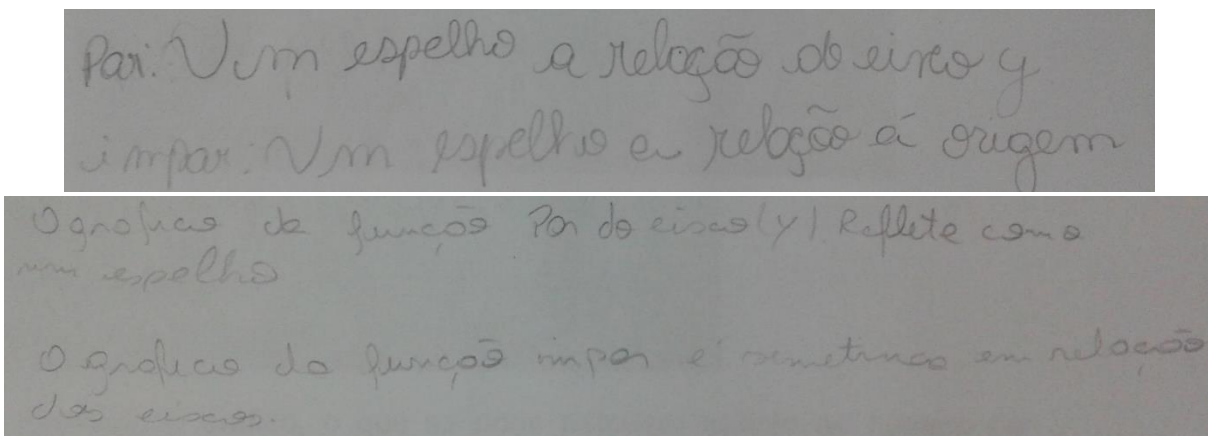 Par: Um espelho a relação do eixo y
impar: Um espelho a relação á origem
O grafico da função Par do eixao (y) Reflete como
um espelho
O grafico da função impar e' simetrico em relação
dos eixos.